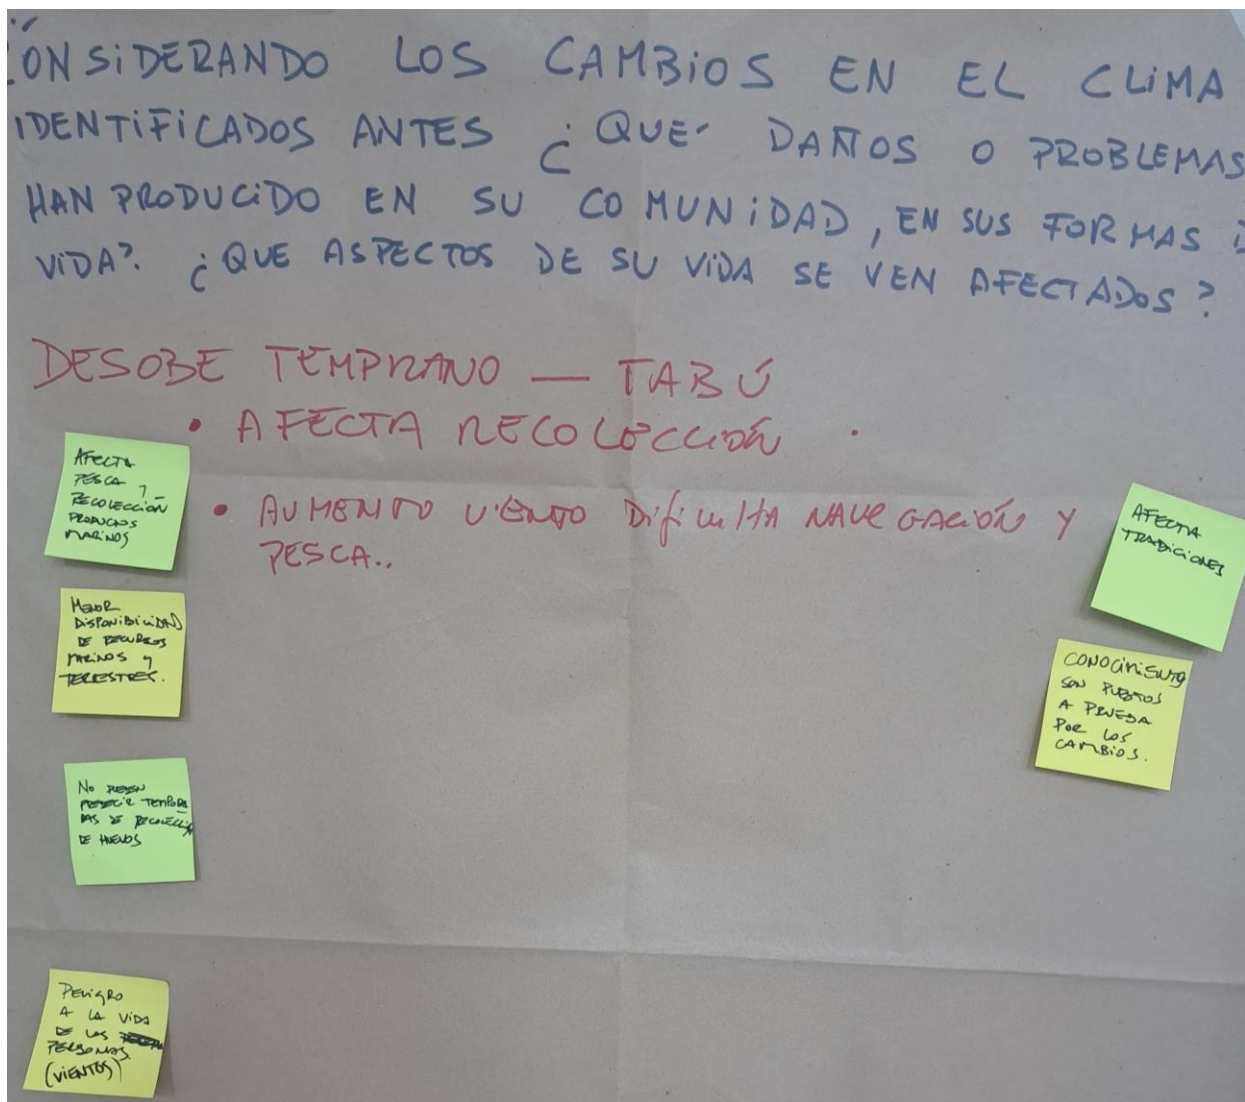 CONSIDERANDO LOS CAMBIOS EN EL CLIMA
IDENTIFICADOS ANTES ¿QUÉ DAÑOS O PROBLEMAS
HAN PRODUCIDO EN SU COMUNIDAD, EN SUS FORMAS D
VIDA? ¿QUE ASPECTOS DE SU VIDA SE VEN AFECTADOS?
DESOBE TEMPRANO — TABÚ
• AFECTA RECOLECCIÓN .
• AUMENTO VIENTO DIFICULTA NAVEGACIÓN Y
PESCA..
AFECTA
PESCA Y
RECOLECCIÓN
PRODUCTOS
MARINOS
MENOR
DISPONIBILIDAD
DE RECURSOS
MARINOS Y
TERRESTRES.
NO PUEDEN
PREDECIR TEMPORA
DAS DE RECOLECCIÓN
DE HUEVOS
PELIGRO
A LA VIDA
DE LAS
PERSONAS
(VIENTOS)
AFECTA
TRADICIONES
CONOCIMIENTO
SON PUESTOS
A PRUEBA
POR LOS
CAMBIOS.